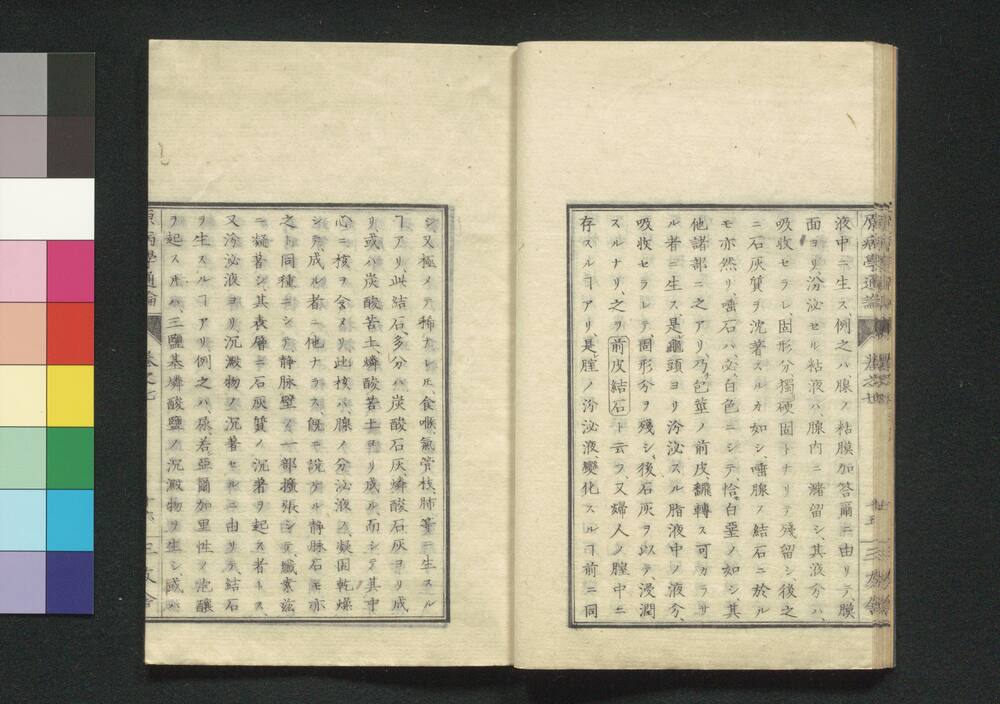 液中ニ生ス、例之ハ腺ノ粘膜加答爾ニ由リテ、膜
面ヨリ、汾泌セル粘液ハ、腺内ニ瀦留シ、其液分ハ、
吸收セラレ、固形分獨硬固トナリテ殘留シ、後之
ニ石灰質ヲ沈著スルカ如シ、唾腺ノ結石ニ於ル
モ亦然リ、唾石ハ必、白色ニシテ、恰白堊ノ如シ、其
他諸部ニ之アリ乃、包莖ノ前皮、飜轉ス可カラサ
ル者ニ生ス、是龜頭ヨリ汾泌スル脂液中ノ液分、
吸收セラレテ固形分ヲ殘シ、後石灰ヲ以テ、浸潤
スルナリ、之ヲ前皮結石ト云フ、又婦人ノ腟中ニ
存スルヿアリ是腟ノ汾泌液、變化スルヿ前ニ同
シ又極メテ稀ナレ𪜈食喉、氣管枝、肺等ニ生スル
ヿアリ、此結石、多分ハ、炭酸石灰、燐酸石灰ヨリ成
リ、或ハ炭酸苦土、燐酸苦土ヨリ成ル、而シテ其中
心ニ核ヲ含メリ此核ハ、腺ノ分泌液ノ、凝固乾燥
シテ成ル者ニ他ナラス、既ニ說ケル靜脉石モ亦
之ト同種ニシテ、靜脉壁ノ一部擴張シテ、纖素玆
ニ凝著シ、其表層ニ石灰質ノ沈著ヲ起ス者トス
又汾泌液ヨリ、沉澱物ノ沉著セルニ由リテ、結石
ヲ生スルヿアリ例之ハ、尿、若、亞爾加里性ノ泡釀
ヲ起ス𪜈ハ、三鹽基燐酸鹽ノ沉澱物ヲ生シ或ハ